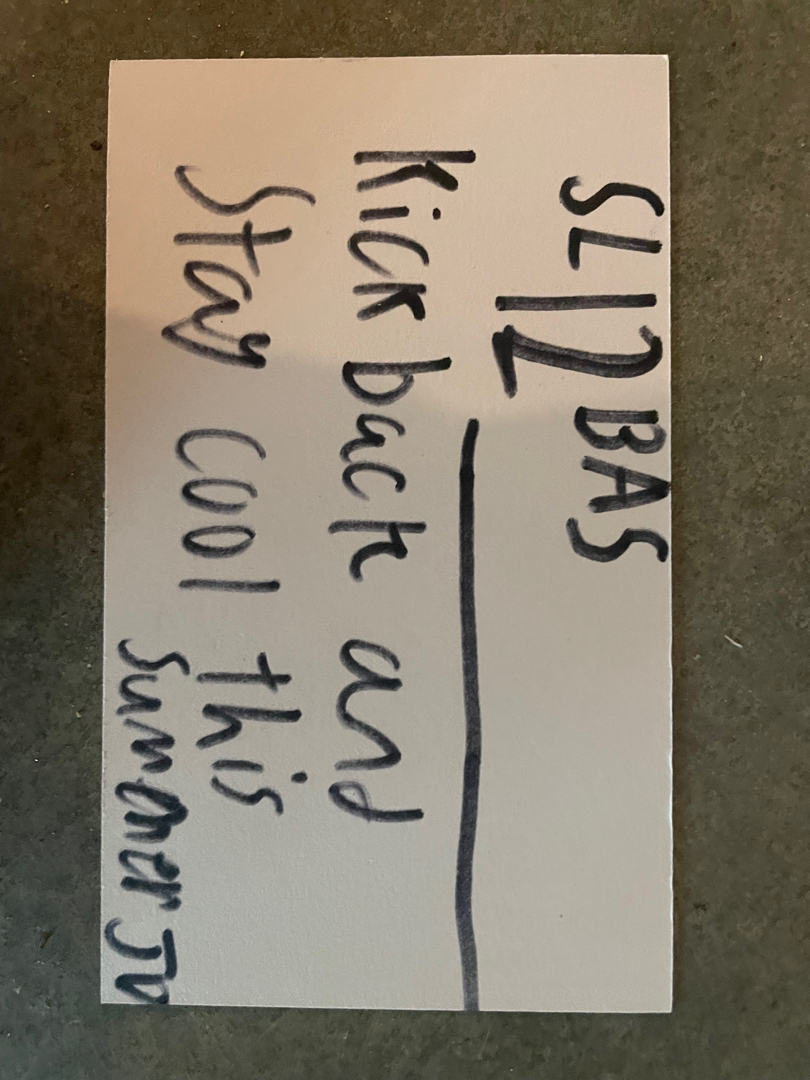 SL12 BAS
Kick back and
Stay cool this
Summer JD